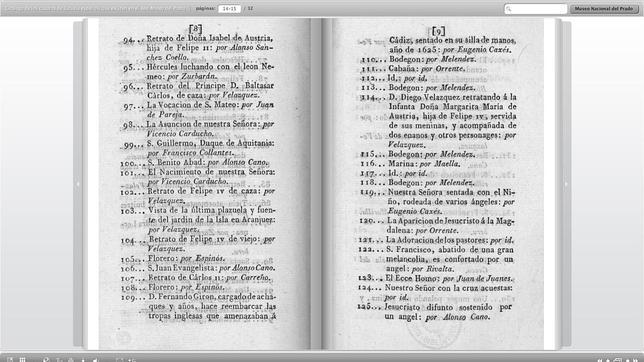 páginas:
14-15
/ 52
Museo Nacional del Prado
[8]
94... Retrato de Doña Isabel de Austria,
hija de Felipe II: por Alonso San-
chez Coello.
95... Hércules luchando con el leon Ne-
meo: por Zurbarán.
96... Retrato del Príncipe D. Baltasar
Cárlos, de caza: por Velazquez.
97... La Vocacion de S. Mateo: por Juan
de Pareja.
98... La Asuncion de nuestra Señora: por
Vicencio Carducho.
99... S. Guillermo, Duque de Aquitania:
por Francisco Collantes.
100... S. Benito Abad: por Alonso Cano.
101... El Nacimiento de nuestra Señora:
por Vicencio Carducho.
102... Retrato de Felipe IV de caza: por
Velazquez.
103... Vista de la última plazuela y fuen-
te del jardin de la Isla en Aranjuez:
por Velazquez.
104... Retrato de Felipe IV de viejo: por
Velazquez.
105... Florero: por Espinós.
106... S. Juan Evangelista: por Alonso Cano.
107... Retrato de Cárlos II: por Carreño.
108... Florero: por Espinós.
109... D. Fernando Giron, cargado de acha-
ques y años, hace reembarcar las
tropas inglesas que amenazaban á
[9]
Cádiz, sentado en su silla de manos,
año de 1625: por Eugenio Caxés.
110... Bodegon: por Melendez.
111... Cabaña: por Orrente.
112... Id.: por id.
113... Bodegon: por Melendez.
114... D. Diego Velazquez retratando á la
Infanta Doña Margarita María de
Austria, hija de Felipe IV, servida
de sus meninas, y acompañada de
dos enanos y otros personages: por
Velazquez.
115... Bodegon: por Melendez.
116... Marina: por Maella.
117... Id.: por id.
118... Bodegon: por Melendez.
119... Nuestra Señora sentada con el Ni-
ño, rodeada de varios ángeles: por
Eugenio Caxés.
120... La Aparicion de Jesucristo á la Mag-
dalena: por Orrente.
121... La Adoracion de los pastores: por id.
122... S. Francisco, abatido de una gran
melancolía, es confortado por un
angel: por Rivalta.
123... El Ecce Homo: por Juan de Juanes.
124... Nuestro Señor con la cruz acuestas:
por id.
125... Jesucristo difunto sostenido por
un angel: por Alonso Cano.